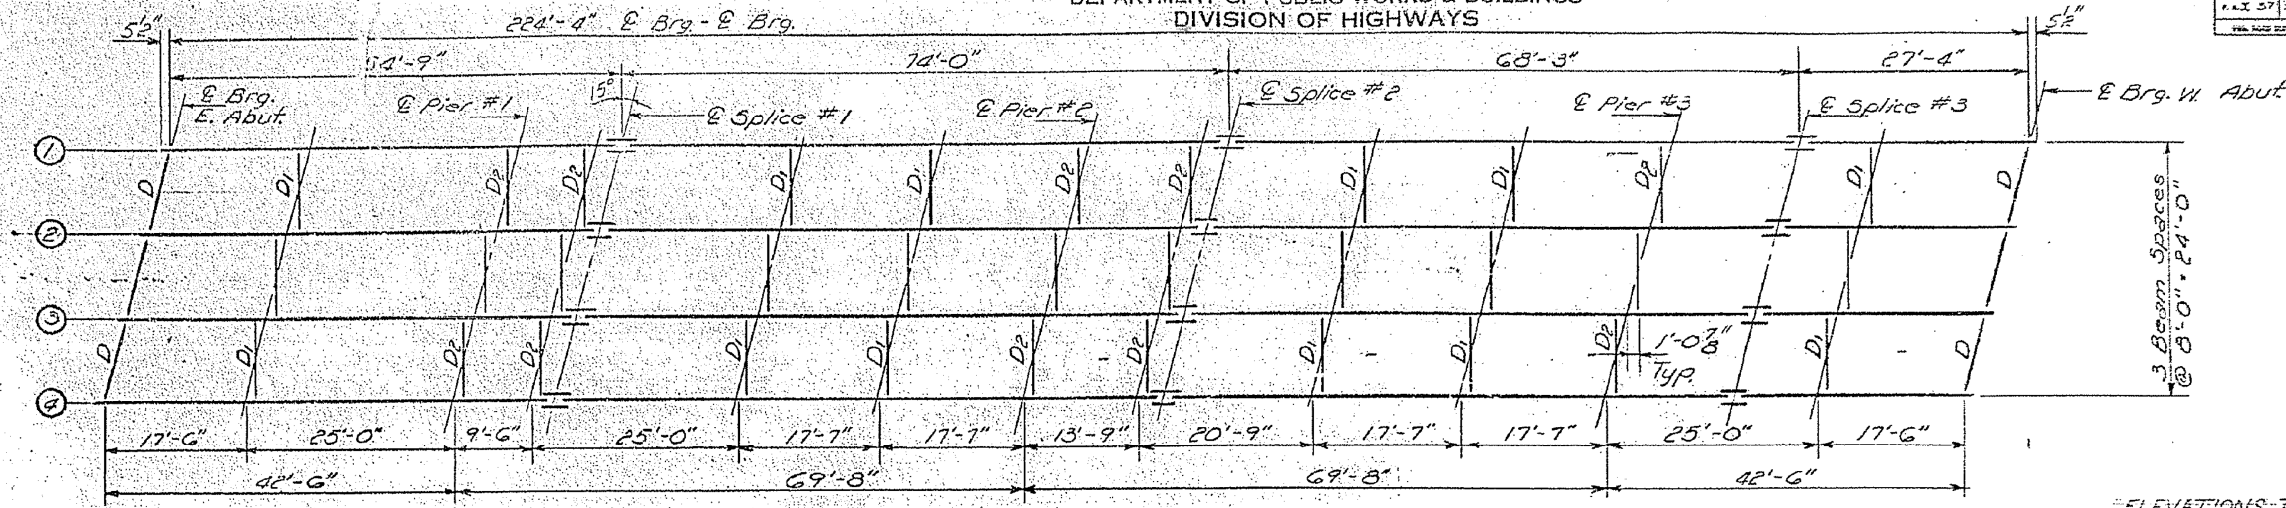 DEPARTMENT OF PUBLIC WORKS & BUILDINGS
DIVISION OF HIGHWAYS
F.A.I. 57
5½"
224'-4" ℄ Brg. - ℄ Brg.
5½"
54'-9"
74'-0"
68'-3"
27'-4"
15°
℄ Brg.
E. Abut.
℄ Pier #1
℄ Splice #1
℄ Pier #2
℄ Splice #2
℄ Pier #3
℄ Splice #3
℄ Brg. W. Abut.
1
D D1 D2 D2 D1 D1 D2 D2 D1 D1 D2 D1 D
2
3
D D1 D2 D2 D1 D1 D2 D2 D1 D1 D2 D1 D
1'-0⅞"
Typ.
4
3 Beam Spaces
@ 8'-0" = 24'-0"
17'-6" 25'-0" 9'-6" 25'-0" 17'-7" 17'-7" 13'-9" 20'-9" 17'-7" 17'-7" 25'-0" 17'-6"
42'-6" 69'-8" 69'-8" 42'-6"
ELEVATIONS